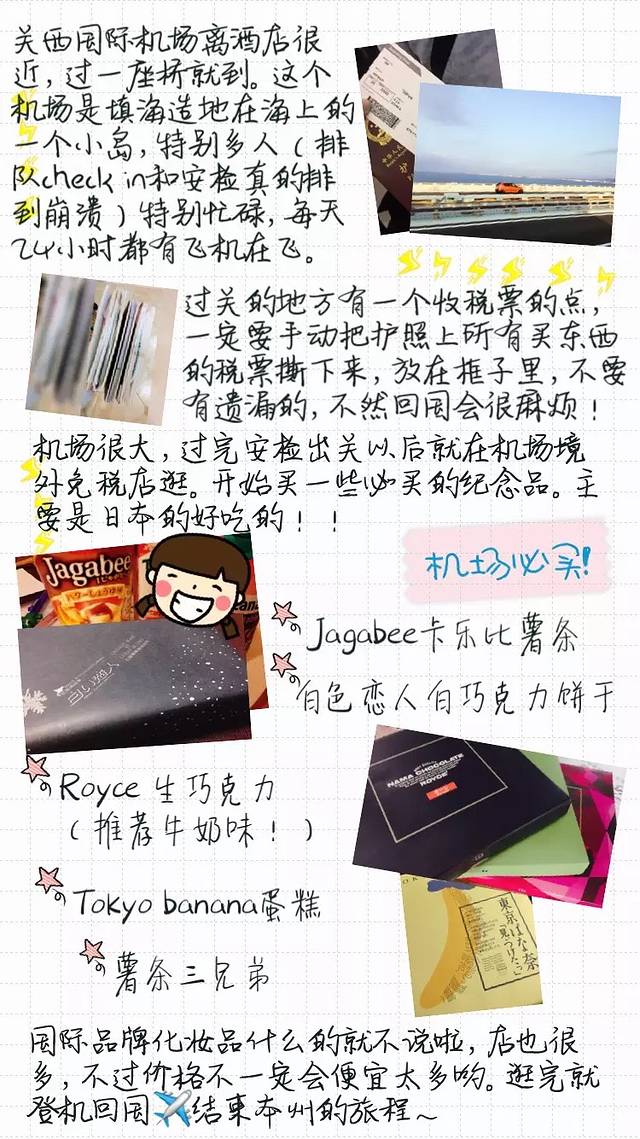 关西国际机场离酒店很
近，过一座桥就到。这个
机场是填海造地在海上的
一个小岛，特别多人（排
队check in和安检真的排
到崩溃）特别忙碌，每天
24小时都有飞机在飞。
过关的地方有一个收税票的点，
一定要手动把护照上所有买东西
的税票撕下来，放在框子里，不要
有遗漏的，不然回国会很麻烦！
机场很大，过完安检出关以后就在机场境
外免税店逛。开始买一些必买的纪念品。主
要是日本的好吃的！！
机场必买!
Jagabee
Jagabee卡乐比薯条
白色恋人白巧克力饼干
白い恋人
Royce 生巧克力
（推荐牛奶味！）
NAMA CHOCOLATE
ROYCE'
Tokyo banana蛋糕
東京ばな奈
「見ぃつけたっ」
薯条三兄弟
国际品牌化妆品什么的就不说啦，店也很
多，不过价格不一定会便宜太多哟。逛完就
登机回国✈️结束本州的旅程~